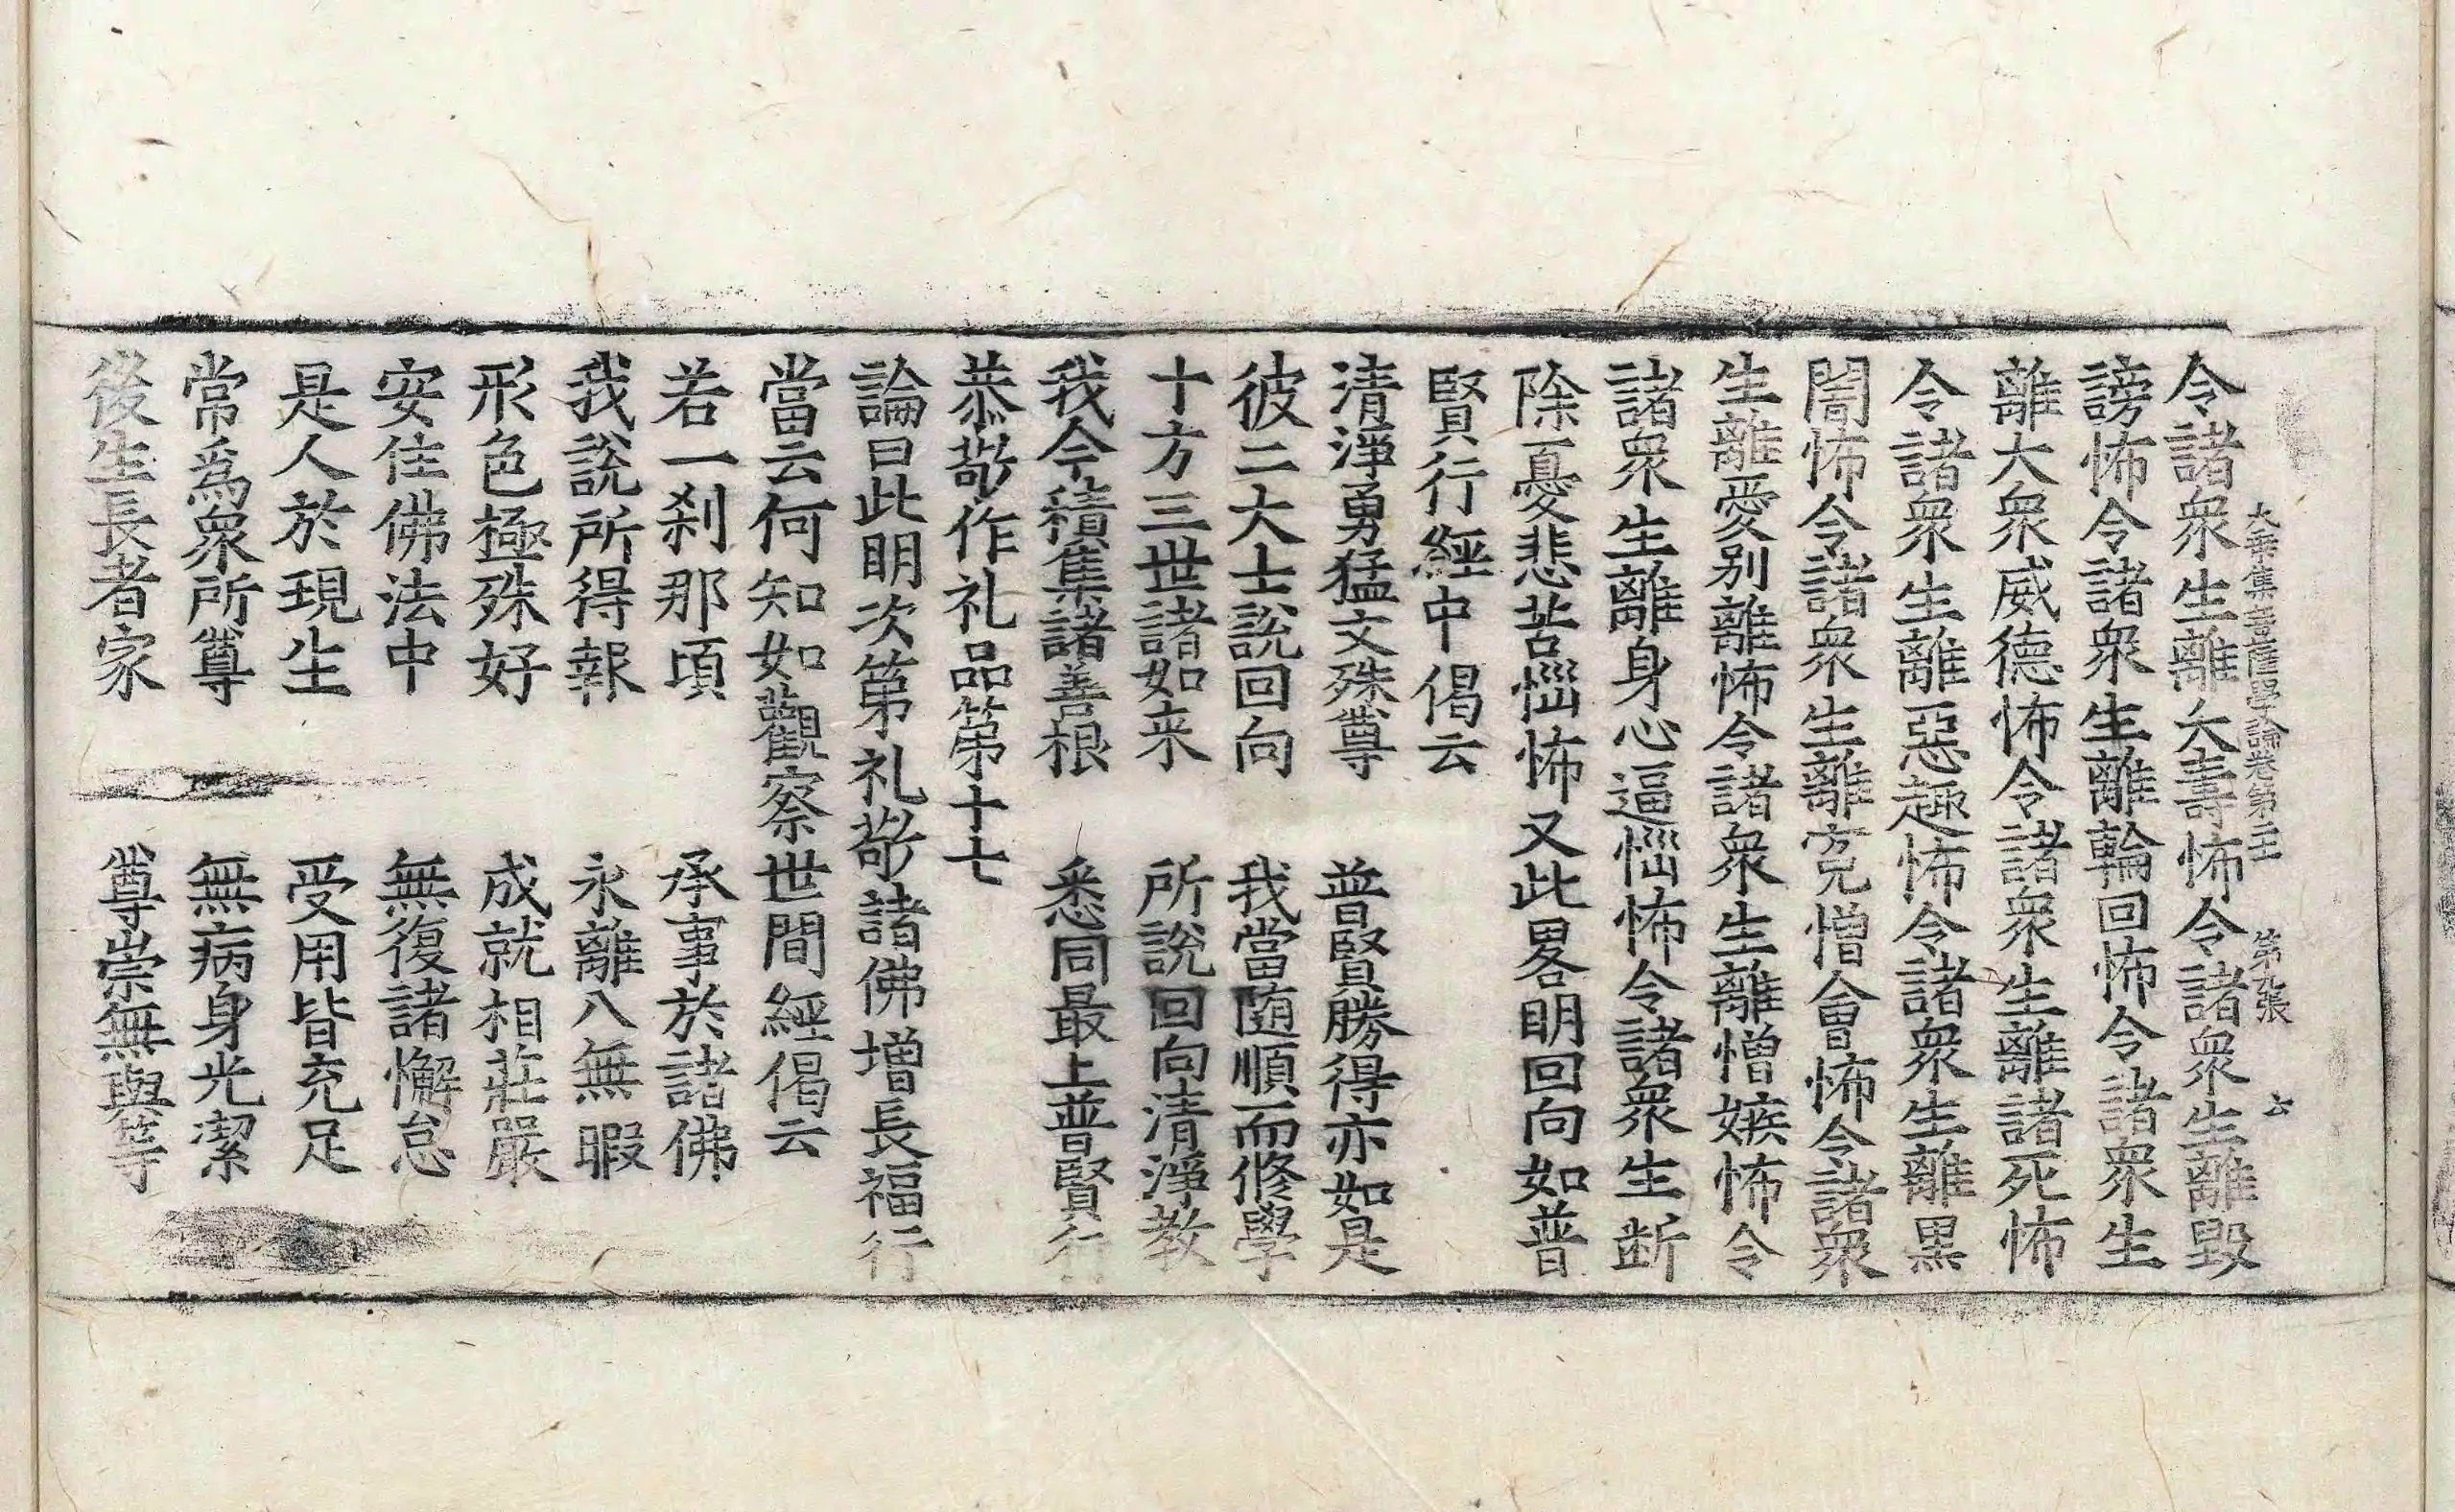 大乘集菩薩學論卷第二十 第九張 六
令諸衆生離夭壽怖令諸衆生離毀
謗怖令諸衆生離輪回怖令諸衆生
離大衆威德怖令諸衆生離諸死怖
令諸衆生離惡趣怖令諸衆生離黒
闇怖令諸衆生離寃憎會怖令諸衆
生離愛别離怖令諸衆生離憎嫉怖令
諸衆生離身心逼惱怖令諸衆生断
除憂悲苦惱怖又此畧明回向如普
賢行經中偈云
清淨勇猛文殊尊 普賢勝得亦如是
彼二大士說回向 我當随順而修學
十方三世諸如来 所說回向清淨教
我今積集諸善根 悉同最上普賢行
恭敬作礼品第十七
論曰此明次第礼敬諸佛增長福行
當云何知如觀察世間經偈云
若一刹那頃 承事於諸佛
我說所得報 永離八無暇
形色極殊好 成就相莊嚴
安住佛法中 無復諸懈怠
是人於現生 受用皆充足
常爲衆所尊 無病身光潔
後生長者家 尊崇無與等